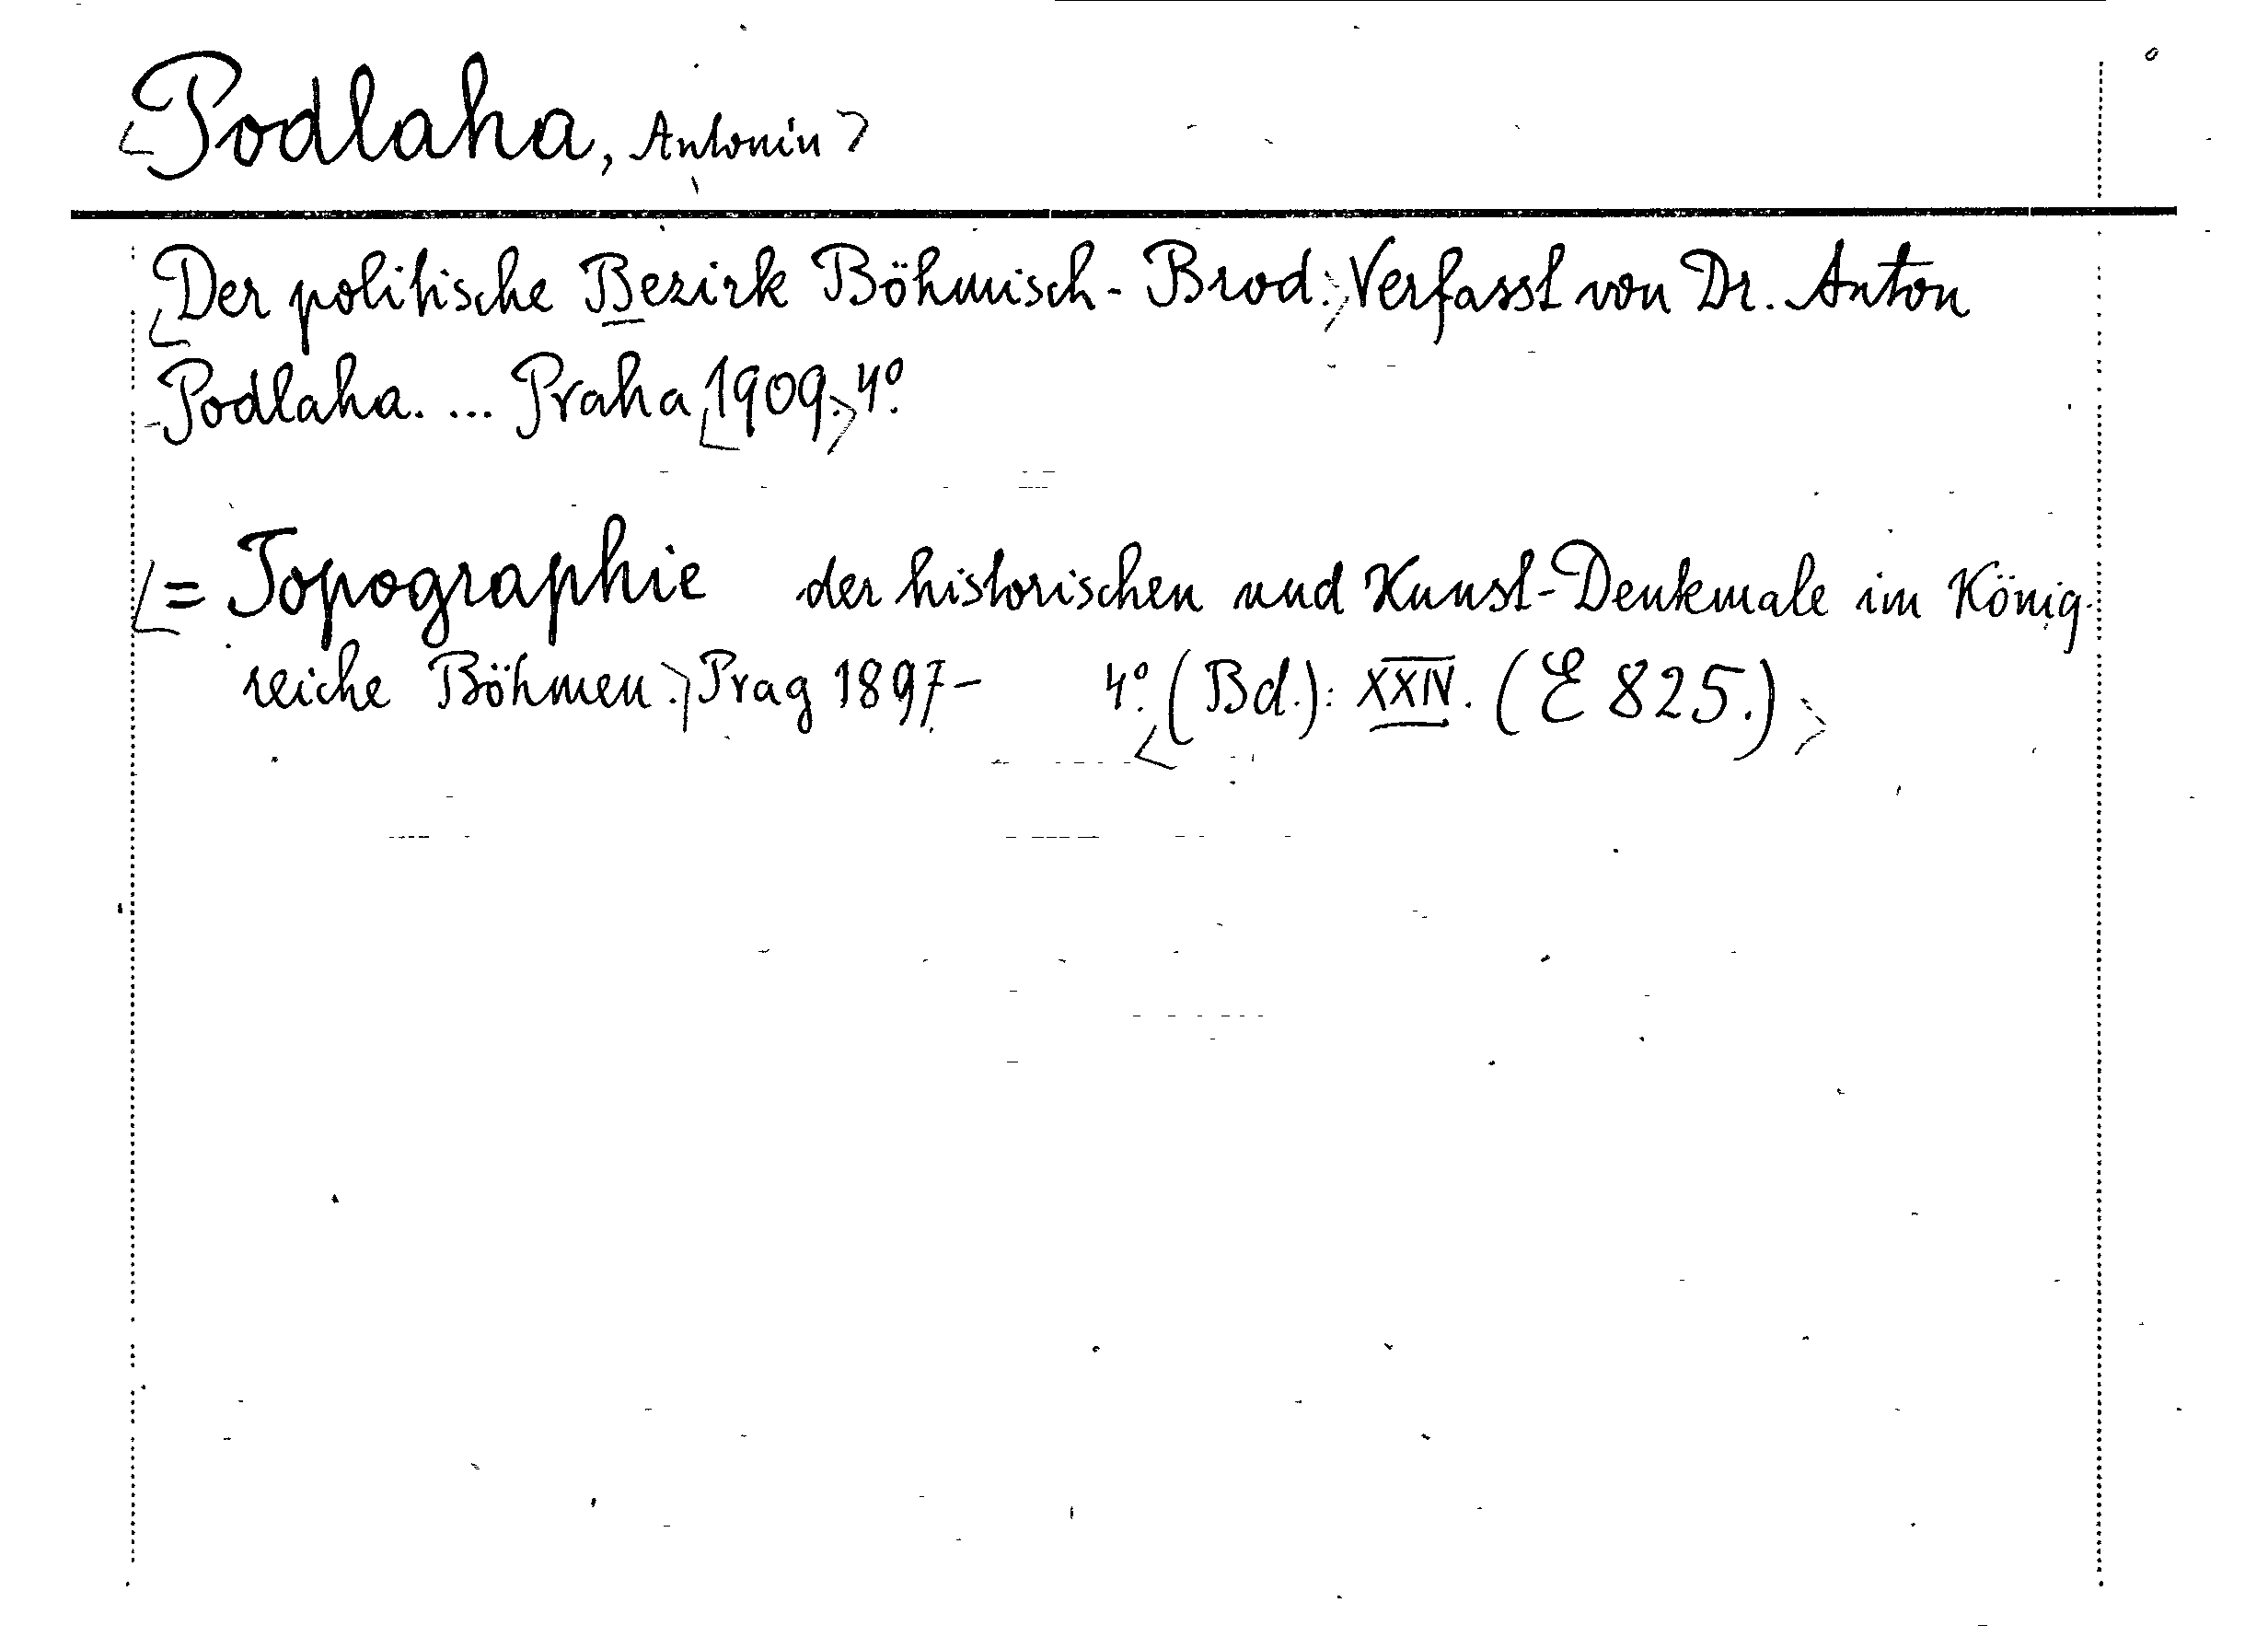 <Podlaha, Antonín>
<Der politische Bezirk Böhmisch-Brod.> Verfasst von Dr. Anton
Podlaha. ... Praha <1909.> 4°.
<= Topographie der historischen und Kunst-Denkmale im König-
reiche Böhmen.> Prag 1897- 4°. <(Bd.): XXIV. (E 825.)>